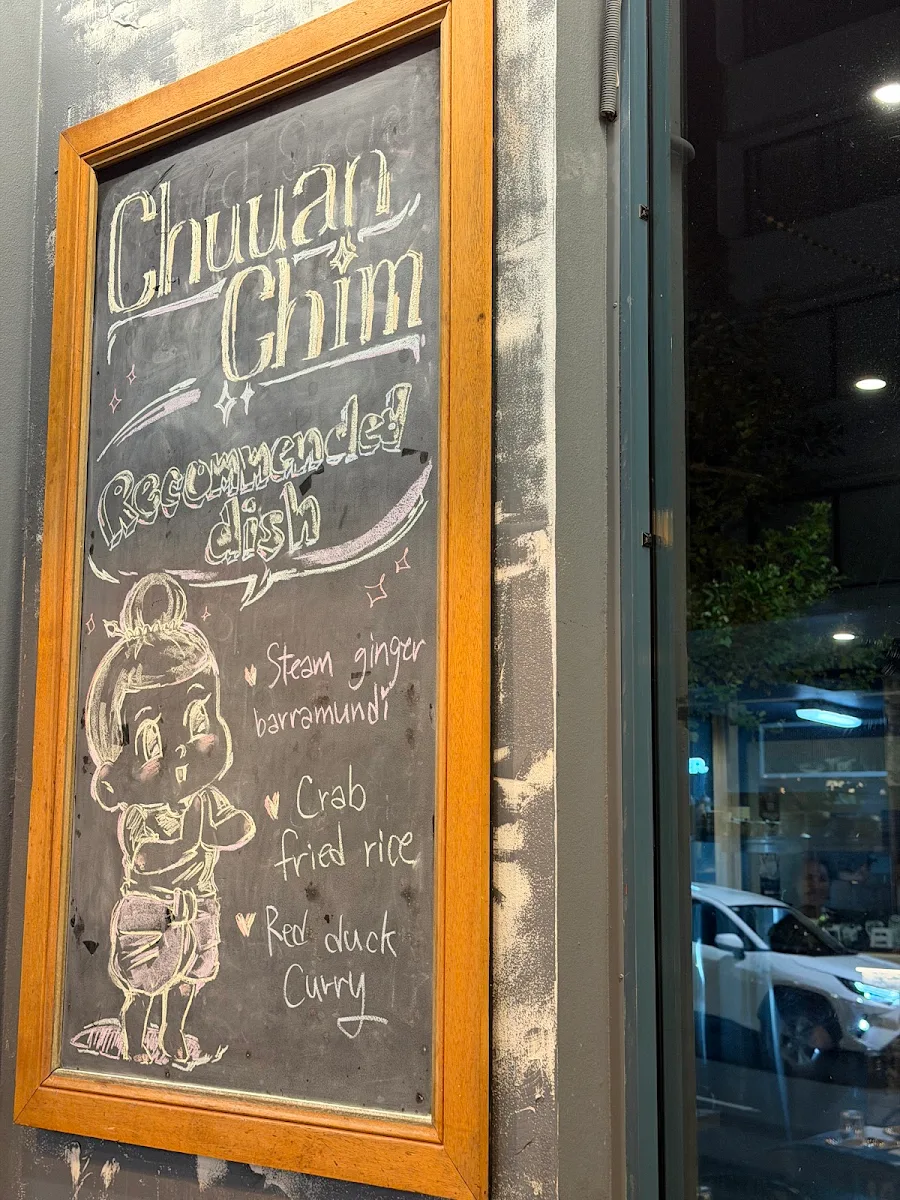 Chuuan
Chim
Recommended
dish
Steam ginger
barramundi
Crab
fried rice
Red duck
Curry